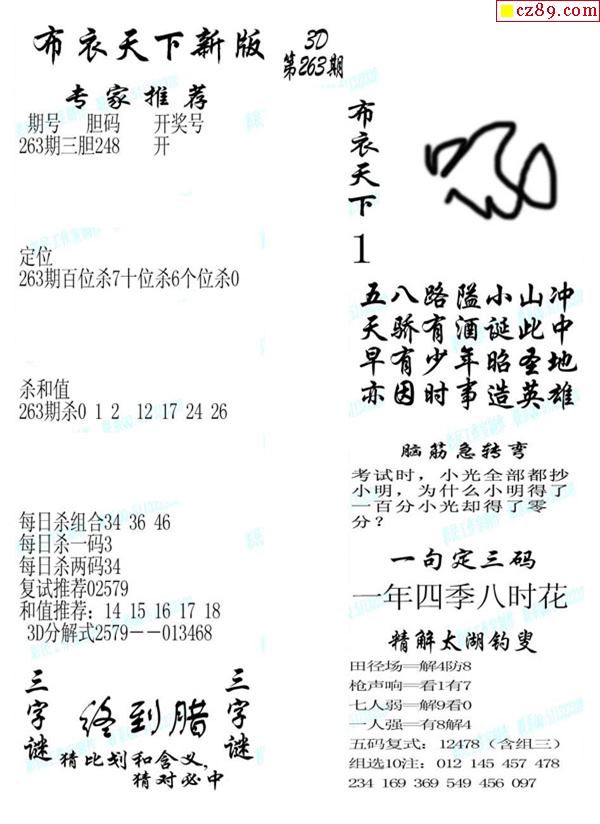 cz89.com
布衣天下新版
3D
第263期
专家推荐
期号 胆码 开奖号
263期三胆248 开
定位
263期百位杀7十位杀6个位杀0
杀和值
263期杀0 1 2 12 17 24 26
每日杀组合34 36 46
每日杀一码3
每日杀两码34
复试推荐02579
和值推荐：14 15 16 17 18
3D分解式2579－－013468
三字谜
终到腊
三字谜
猜比划和含义，
猜对必中
布衣天下
1
五八路隘小山冲
天骄有酒诞此中
早有少年昭圣地
亦因时事造英雄
脑筋急转弯
考试时，小光全部都抄
小明，为什么小明得了
一百分小光却得了零
分？
一句定三码
一年四季八时花
精解太湖钓叟
田径场══解4防8
枪声响══看1有7
七人弱══解9看0
一人强══有8解4
五码复式：12478（含组三）
组选10注：012 145 457 478
234 169 369 549 456 097